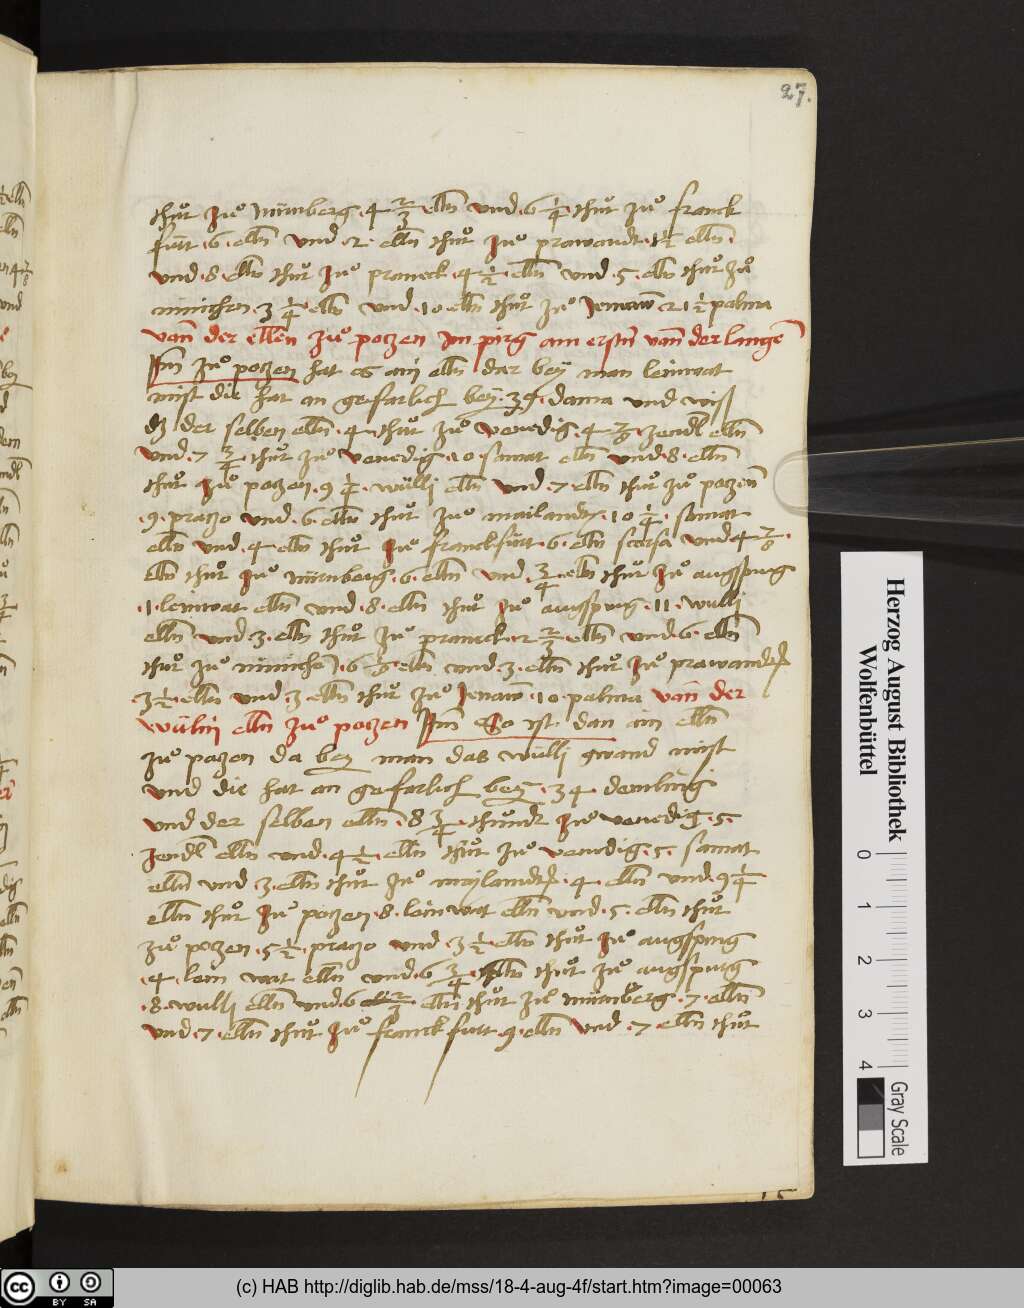 27.
thuͦt zuͦ nürmberg · 4 2/3 elln̄ vnd · 6 1/4 thuͦt zuͦ franck
furt · 6 · elln̄ vnd · 2 · elln̄ thuͦt zuͦ prawandt · 1 1/2 elln̄ ·
vnd · 8 · elln̄ thuͦt zuͦ praneck · 4 1/2 · elln̄ vnd · 5 · elln̄ thuͦt zuͦ
münichen · 3 1/4 · elln̄ vnd · 10 elln̄ thuͦt zuͦ Jenaw̄ · 21 1/2 palma
vān der ellen zuͦ poczen Im pirg am erstn̄ vān der langē
Jtm̄ zuͦ poczen hat es ain elln̄ dar bey man leinwat
mist die hat an gefarlich bey · 34 · dama vnd wiss
dz der selben elln̄ · 4 · thuͦt zuͦ venedig · 4 zendl elln̄
vnd · 7 3/4 thuͦt zuͦ venedig · 10 · samat elln̄ vnd · 8 · elln̄
thuͦt zuͦ poczen · 9 1/4 · wülli elln̄ vnd · 7 · elln̄ thuͦt zuͦ poczen̄
· 9 · praczo vnd · 6 · elln̄ thuͦt zuͦ mailandt · 10 1/4 · samat
elln̄ vnd · 4 elln̄ thuͦt zuͦ franckfurt · 6 · elln̄ scarsa vnd · 4
elln̄ thuͦt zuͦ nürmberg · 6 · elln̄ vnd 3/4 · elln̄ thuͦt zuͦ augspurg
· 1 · leinwat elln̄ vnd · 8 · elln̄ thuͦt zuͦ augspurg · 11 · wulli
elln̄ vnd · 3 · elln̄ thuͦt zuͦ pranick · 2 2/3 · elln̄ vnd · 6 · elln̄
thuͦt zuͦ münichē · 6 elln̄ vnd · 3 · elln̄ thuͦt zuͦ prawandt
· 3 1/2 · elln̄ vnd · 3 · elln̄ thuͦt zuͦ Jenaw̄ · 10 · palma vān der
wülin elln̄ zuͦ poczen Jtm̄ So ist · dan ain elln̄
zuͦ poczen da bey man das wülli gwand mist
vnd die hat an gefarlich bey · 34 demling
vnd der selben elln̄ · 8 3/4 · thuͦndt zuͦ venedig · 5 ·
zendl elln̄ vnd · 4 1/2 · elln̄ thuͦt zuͦ venedig · 5 · samat
elln̄ vnd · 3 · elln̄ thuͦt zuͦ maylandt · 4 · elln̄ vnd · 9 1/4
elln̄ thuͦt zuͦ poczen · 8 · lein wat elln̄ vnd · 5 · elln̄ thuͦt
zuͦ poczen · 5 1/2 · praczo vnd · 3 1/2 · elln̄ thuͦt zuͦ augspurg
· 4 · lein wat elln̄ vnd · 6 3/4 · elln̄ thuͦt zuͦ augspurg
· 8 · wulli elln̄ vnd · 6 elln̄ thuͦt zuͦ nürmberg · 7 · elln̄
vnd · 7 · elln̄ thuͦt zuͦ franck furt · 9 · elln̄ vnd · 7 · elln̄ thuͦt
Herzog August Bibliothek
Wolfenbüttel
0 1 2 3 4
Gray Scale
cc BY SA
(c) HAB http://diglib.hab.de/mss/18-4-aug-4f/start.htm?image=00063